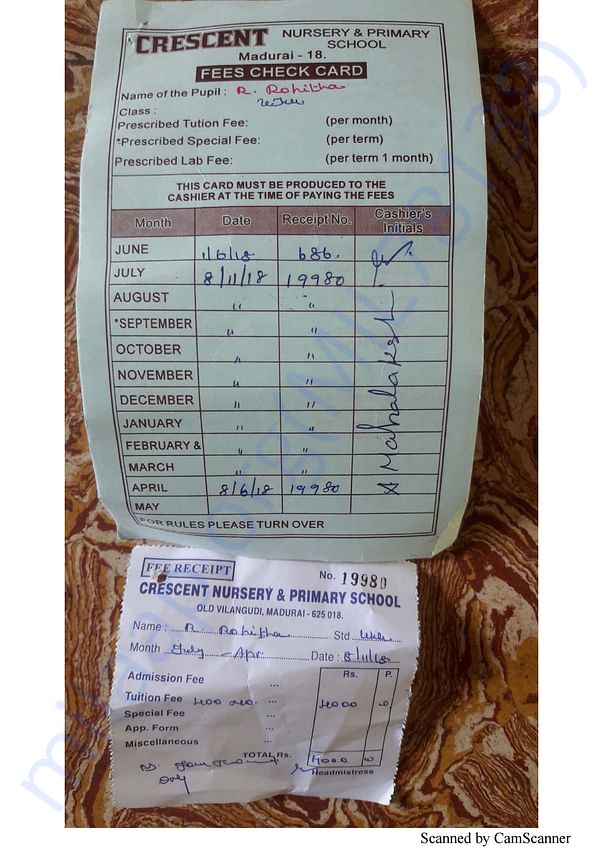 CRESCENT NURSERY & PRIMARY SCHOOL
Madurai - 18.
FEES CHECK CARD
Name of the Pupil : R. Rohitha
Class : UKG
Prescribed Tution Fee: (per month)
*Prescribed Special Fee: (per term)
Prescribed Lab Fee: (per term 1 month)
THIS CARD MUST BE PRODUCED TO THE
CASHIER AT THE TIME OF PAYING THE FEES
Month Date Receipt No. Cashier's Initials
JUNE 1/6/18 686.
JULY 8/11/18 19980
AUGUST " "
*SEPTEMBER " "
OCTOBER " "
NOVEMBER " "
DECEMBER " "
JANUARY " "
FEBRUARY & " "
MARCH " "
APRIL 8/6/18 19980
MAY
A Mahalakshmi
FOR RULES PLEASE TURN OVER
FEE RECEIPT No. 19980
CRESCENT NURSERY & PRIMARY SCHOOL
OLD VILANGUDI, MADURAI - 625 018.
Name : R. Rohitha Std UKG
Month July - Apr Date : 8/11/18
Rs. P.
Admission Fee ...
Tuition Fee 400 ... 4000
Special Fee ...
App. Form ...
Miscellaneous ...
TOTAL Rs. 4000
Rs. four thousand only
Headmistress
Scanned by CamScanner